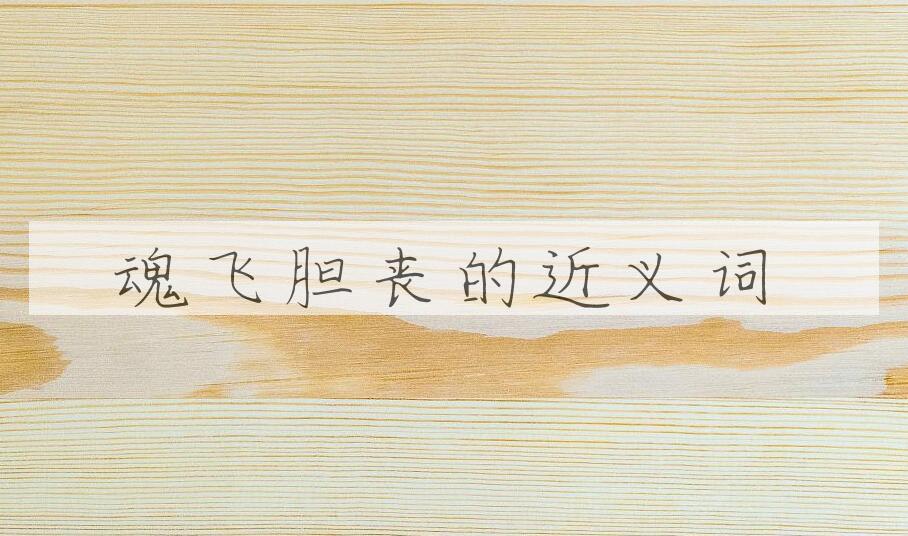 魂飞胆丧的近义词